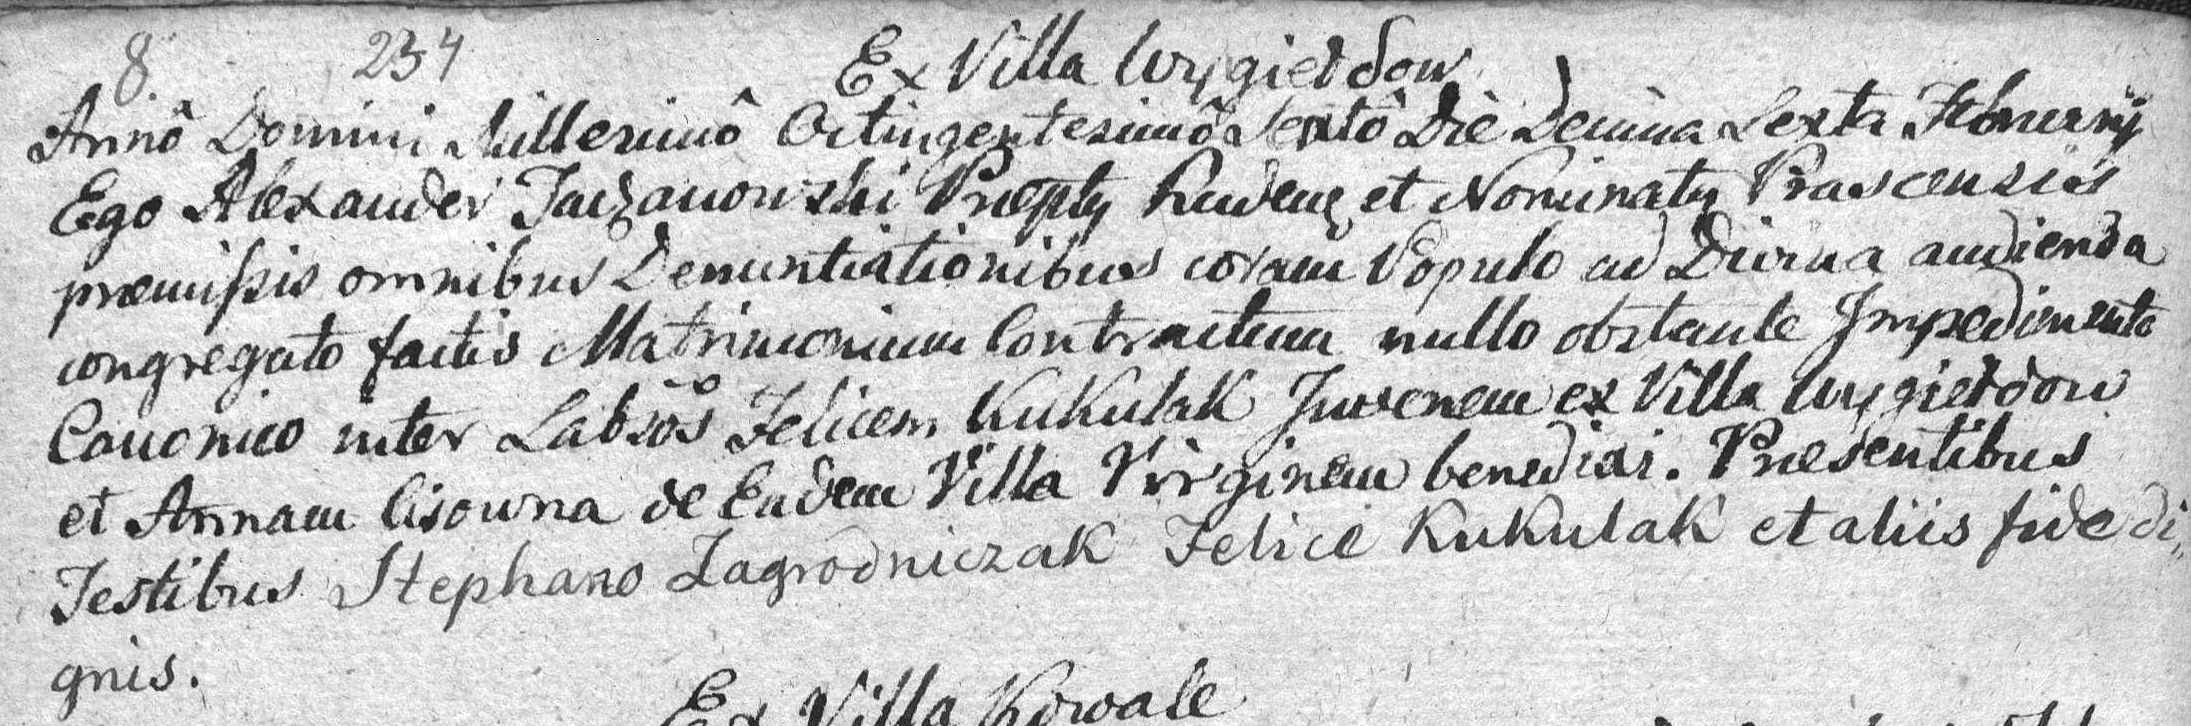 8. 234
Ex Villa Wygiełdow
Annô Domini Millesimô Octingentesimô Sextô Die Decima Sexta Februarij
Ego Alexander Præpty Ruden et Nominaty Prascensis
præmissis omnibus Denuntiationibus coram Populo ad Divina audienda
congregato factis Matrimonium Contractum nullo obstante Impedimento
Canonico inter Labsos Felicem Kukulak Juvenem ex Villa Wygiełdow
et Annam Cisowna de Eadem Villa Virginem benedixi. Præsentibus
Testibus Stephano Zagrodniczak Felice Kukulak et aliis fide di„
gnis.
Ex Villa Kowale